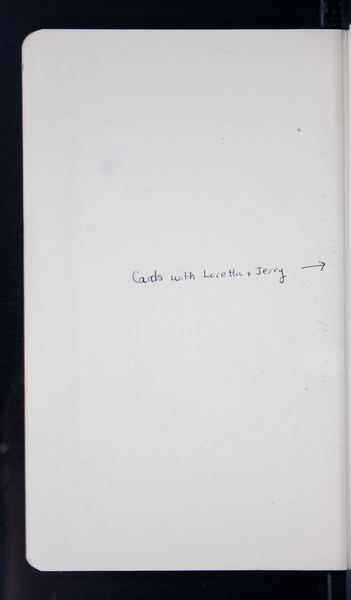 Cards with Loretta + Jerry →